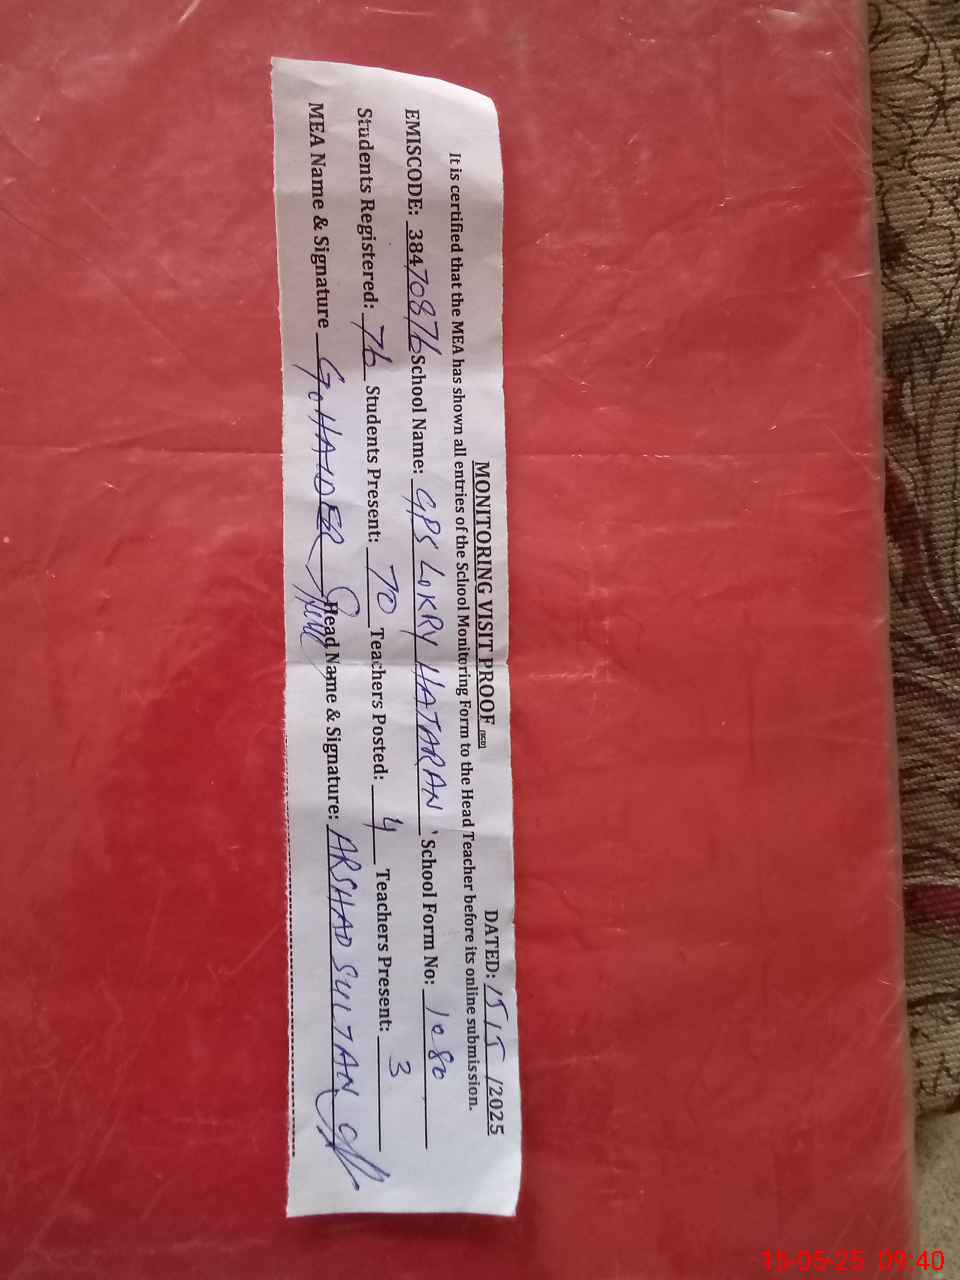 MONITORING VISIT PROOF DATED: 15/5/2025
It is certified that the MEA has shown all entries of the School Monitoring Form to the Head Teacher before its online submission.
EMISCODE: 38470876 School Name: GPS LOKRY HATARAN School Form No: 1080
Students Registered: 76 Students Present: 70 Teachers Posted: 4 Teachers Present: 3
MEA Name & Signature G. HAIDER Head Name & Signature: ARSHAD SULTAN
15-05-25 09:40